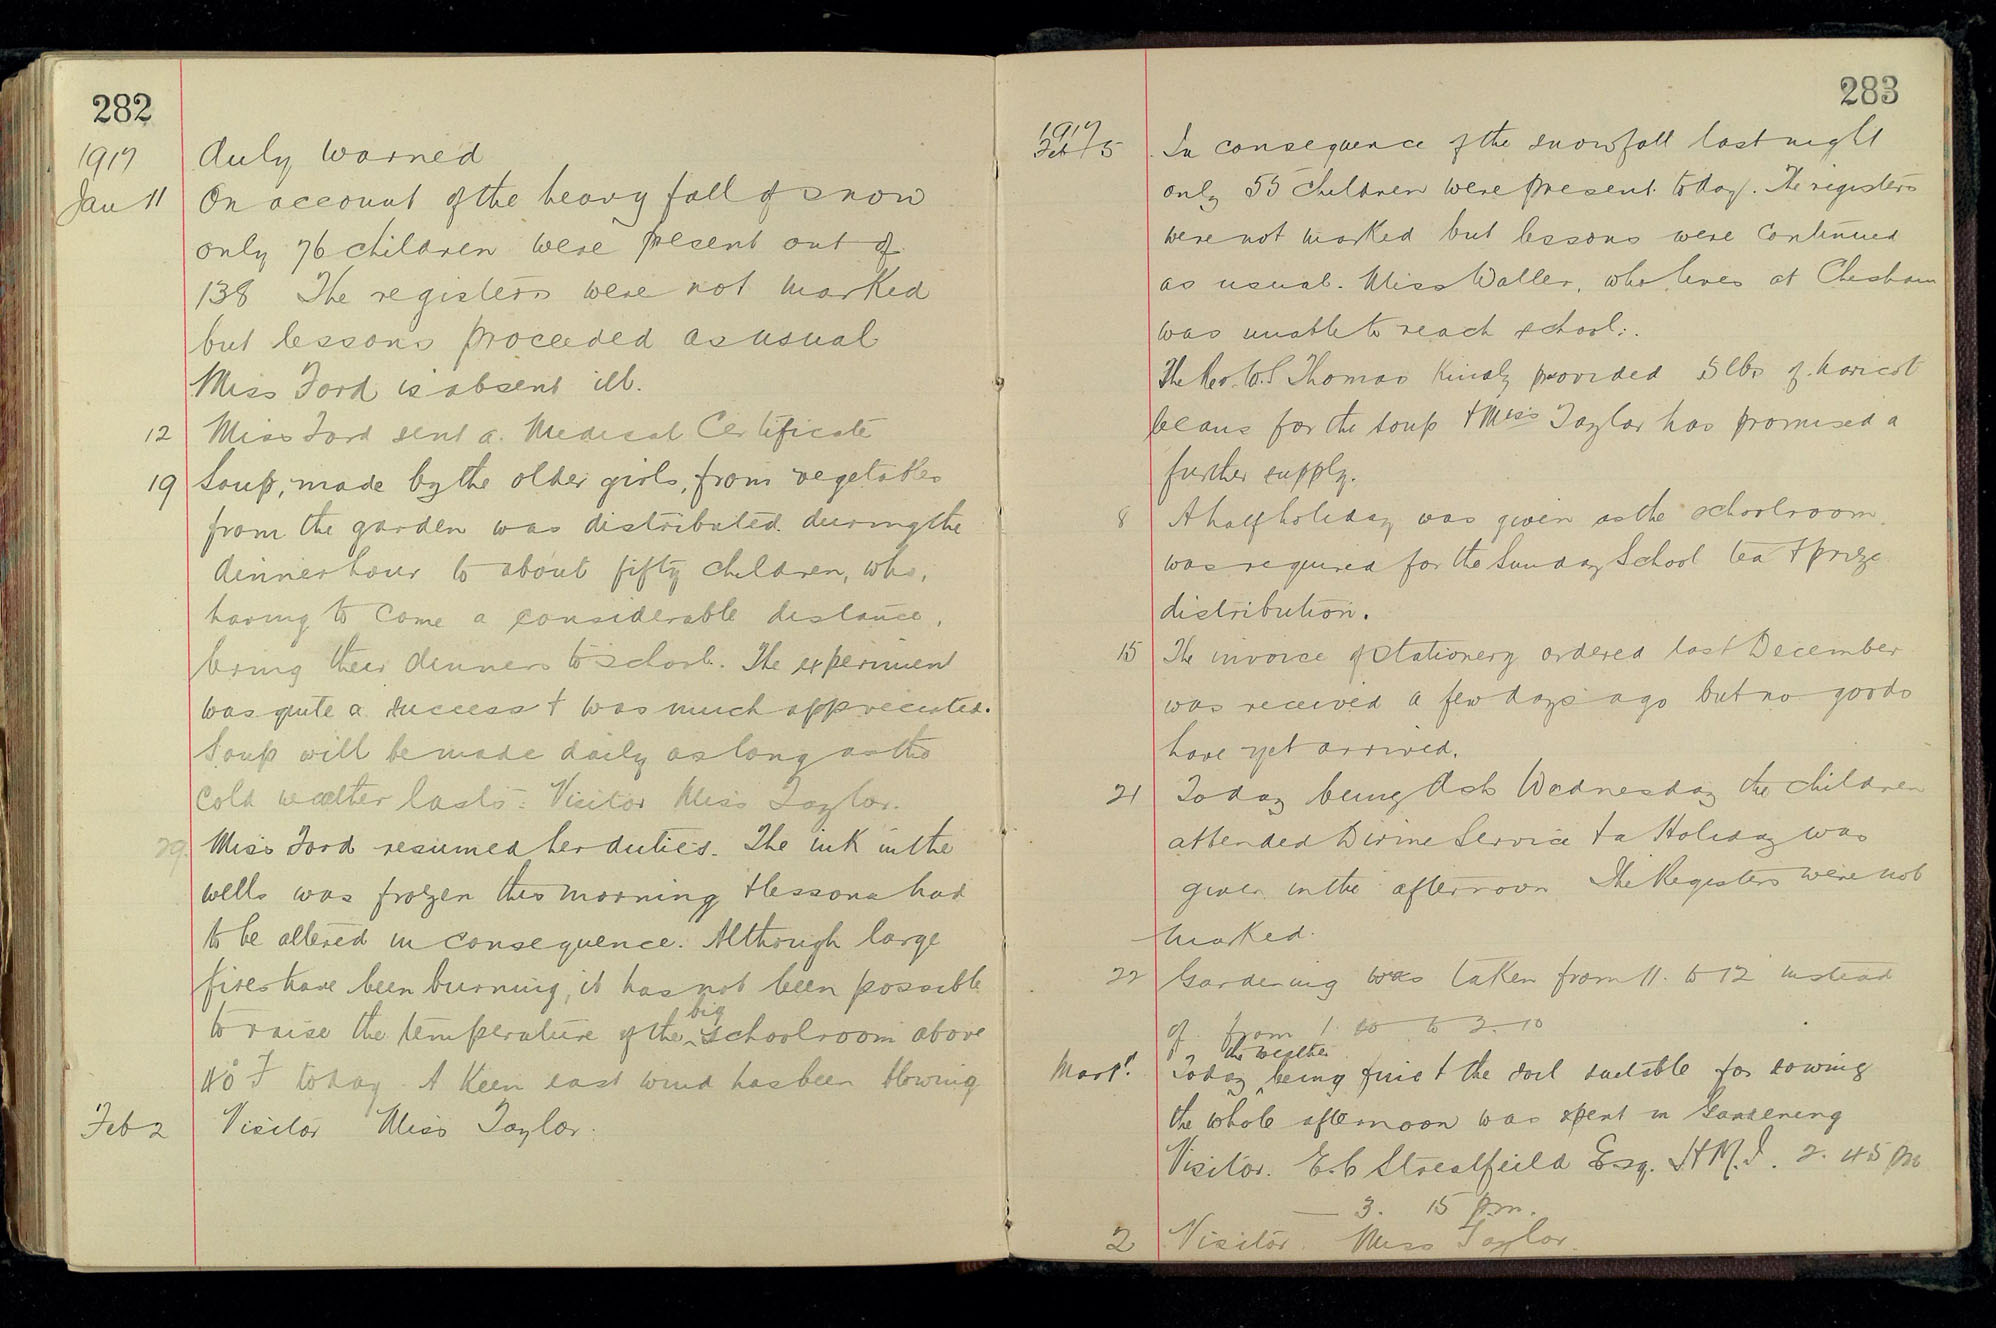 282
1917 duly warned
Jan 11 On account of the heavy fall of snow
only 76 children were present out of
138 The registers were not marked
but lessons proceeded as usual
Miss Ford is absent ill.
12 Miss Ford sent a Medical Certificate
19 Soup, made by the older girls, from vegetables
from the garden was distributed during the
dinner hour to about fifty children, who,
having to come a considerable distance,
bring their dinners to school. The experiment
was quite a success & was much appreciated.
Soup will be made daily as long as the
cold weather lasts. Visitor Miss Taylor.
29. Miss Ford resumed her duties. The ink in the
wells was frozen this morning & lessons had
to be altered in consequence. Although large
fires have been burning, it has not been possible
to raise the temperature of the big schoolroom above
40° F today. A keen east wind has been blowing
Feb 2 Visitor Miss Taylor.
283
1917
Feb 5 In consequence of the snowfall last night
only 55 children were present today. The registers
were not marked but lessons were continued
as usual. Miss Waller, who lives at Chesham
was unable to reach school.
The Rev. W.S Thomas kindly provided 5 lbs of haricot
beans for the soup & Miss Taylor has promised a
further supply.
8 A half holiday was given as the schoolroom
was required for the Sunday School tea & prize
distribution.
15 The invoice of stationery ordered last December
was received a few days ago but no goods
have yet arrived.
21 Today being Ash Wednesday the children
attended Divine Service & a Holiday was
given in the afternoon The Registers were not
marked.
22 Gardening was taken from 11. to 12 instead
of from 1. to 2.10
Mar 1st. Today the weather being fine & the soil suitable for sowing
the whole afternoon was spent in Gardening
Visitor. E.C Streatfeild Esq. H.M.I. 2.45 pm
— 3.15 p.m.
2 Visitor. Miss Taylor.